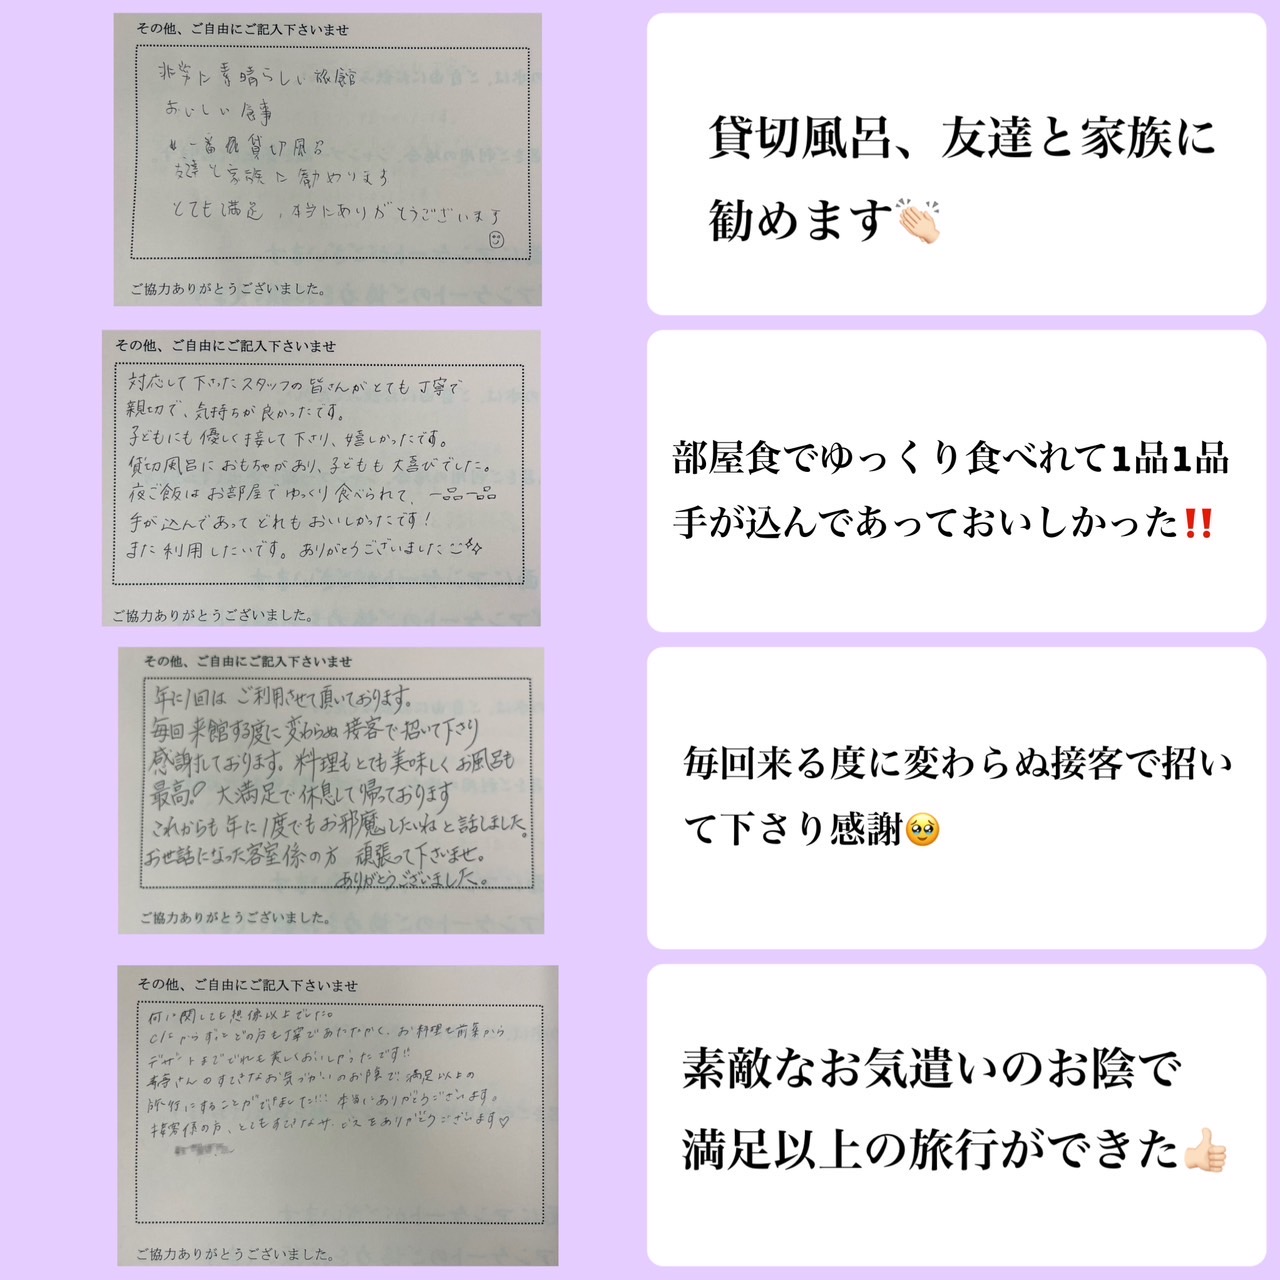 その他、ご自由にご記入下さいませ
非常に素晴らしい旅館
おいしい食事
一番貸切風呂
友達と家族に勧めります
とても満足、本当にありがとうございます
ご協力ありがとうございました。
貸切風呂、友達と家族に
勧めます👏🏻
その他、ご自由にご記入下さいませ
対応して下さったスタッフの皆さんがとても丁寧で
親切で、気持ちが良かったです。
子どもにも優しく接して下さり、嬉しかったです。
貸切風呂におもちゃがあり、子どもも大喜びでした。
夜ご飯はお部屋でゆっくり食べられて、一品一品
手が込んであってどれもおいしかったです!
また利用したいです。ありがとうございました
ご協力ありがとうございました。
部屋食でゆっくり食べれて1品1品
手が込んであっておいしかった‼️
その他、ご自由にご記入下さいませ
年に1回はご利用させて頂いております。
毎回来館する度に変わらぬ接客で招いて下さり
感謝しております。料理もとても美味しくお風呂も
最高!大満足で休息して帰っております
これからも年に1度でもお邪魔したいねと話しました。
お世話になった客室係の方 頑張って下さいませ。
ありがとうございました。
ご協力ありがとうございました。
毎回来る度に変わらぬ接客で招い
て下さり感謝🥹
その他、ご自由にご記入下さいませ
何に関しても想像以上でした。
からずっとどの方も丁寧であたたかく、お料理も前菜から
デザートまでどれも美しくおいしかったです!!
さんのすてきなお気づかいのお陰で、満足以上の
旅行にすることができました!!! 本当にありがとうございます。
接客係の方、とてもすてきなサービスをありがとうございます♡
ご協力ありがとうございました。
素敵なお気遣いのお陰で
満足以上の旅行ができた👍🏻